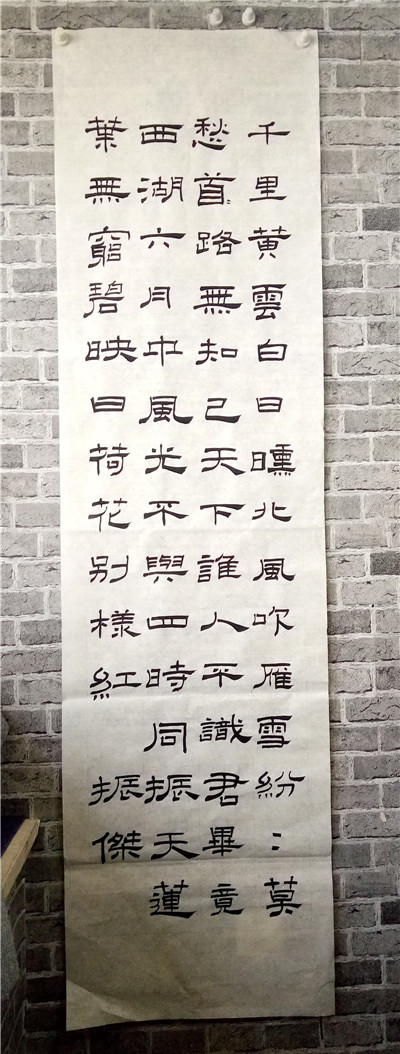 千里黄雲白日曛北風吹雁雪紛〻莫
愁首路無知己天下誰人不識君畢竟
西湖六月中風光不與四時同振天蓮
葉無窮碧映日荷花别樣紅 振傑